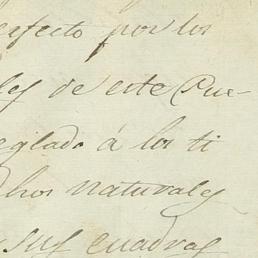 erfecto por los
les de este Pue-
eglado á los ti
dhos naturales
sus cuadras